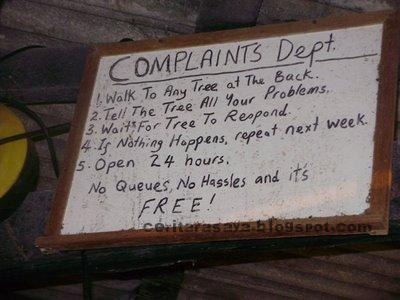 COMPLAINTS Dept.
1. Walk To Any Tree at The Back.
2. Tell The Tree All Your Problems.
3. Wait For Tree To Respond.
4. If Nothing Happens, repeat next week.
5. Open 24 hours.
No Queues, No Hassles and it's
FREE!
ceritarasaya.blogspot.com